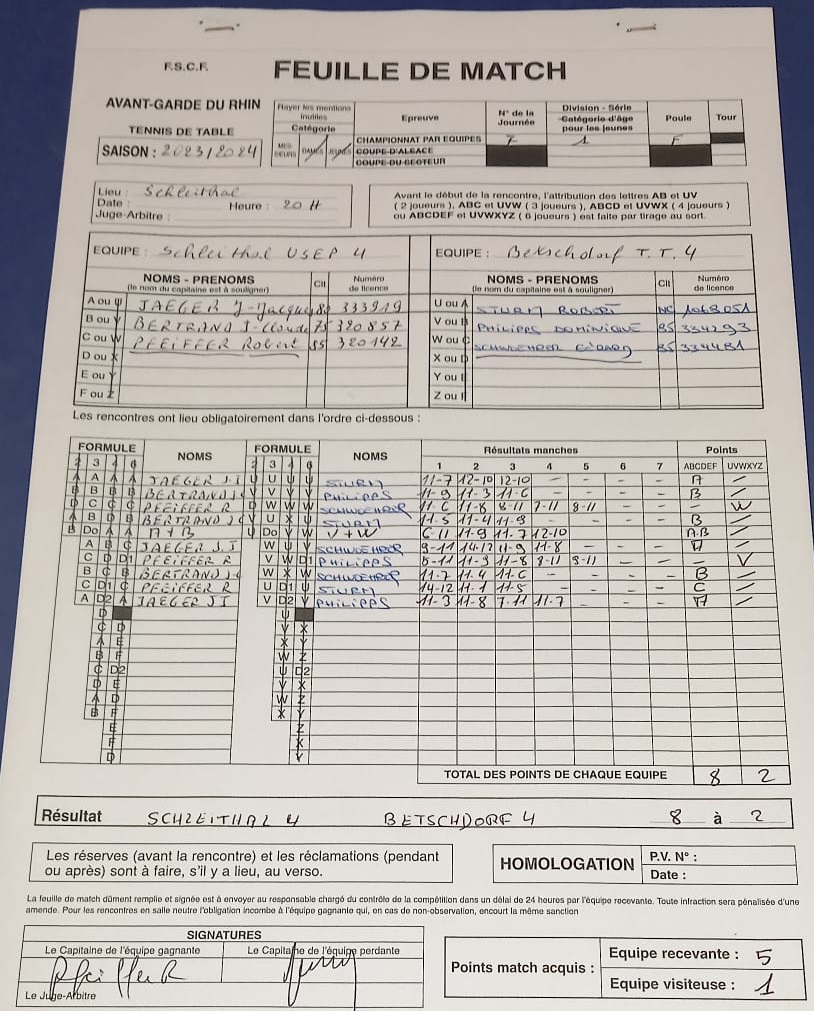 F.S.C.F.
FEUILLE DE MATCH
AVANT-GARDE DU RHIN
TENNIS DE TABLE
SAISON : 2023/2024
Rayer les mentions inutiles
Catégorie
MES-SIEURS DAMES JEUNES
Epreuve
CHAMPIONNAT PAR EQUIPES
COUPE D'ALSACE
N° de la Journée
7
Division - Série
Catégorie d'âge pour les jeunes
1
Poule
F
Tour
Lieu : Schleithal
Date :
Heure : 20 H
Juge-Arbitre :
Avant le début de la rencontre, l'attribution des lettres AB et UV
( 2 joueurs ), ABC et UVW ( 3 joueurs ), ABCD et UVWX ( 4 joueurs )
ou ABCDEF et UVWXYZ ( 6 joueurs ) est faite par tirage au sort.
EQUIPE : Schleithal USEP 4
NOMS - PRENOMS
(le nom du capitaine est à souligner)
Clt
Numéro de licence
A ou U JAEGER J-Jacques 80 333919
B ou V BERTRAND J-Claude 75 320857
C ou W PFEIFFER Robert 85 320142
D ou X
E ou Y
F ou Z
EQUIPE : Betschdorf T.T. 4
NOMS - PRENOMS
(le nom du capitaine est à souligner)
Clt
Numéro de licence
U ou A STURM ROBERT NC 1068051
V ou B PHILIPPS DOMINIQUE 85 334293
W ou C SCHWEHRER 85 334481
X ou D
Y ou E
Z ou F
Les rencontres ont lieu obligatoirement dans l'ordre ci-dessous :
FORMULE NOMS FORMULE NOMS Résultats manches Points
2 3 4 6 2 3 4 6 1 2 3 4 5 6 7 ABCDEF UVWXYZ
A A A A JAEGER J.J U U U U STURM 11-7 12-10 12-10 - - - - A -
B B B B BERTRAND J V V V V PHILIPPS 11-9 11-3 11-6 - - - - B -
C C C PFEIFFER R W W W SCHWEHRER 11-6 11-8 8-11 7-11 8-11 - - - W
A B D B BERTRAND J C V U X U STURM 11-5 11-4 11-9 - - - - B -
B Do A A A+B U Do V V V+W 6-11 11-9 11-7 12-10 - - - A.B -
A B C JAEGER J.J W U W SCHWEHRER 9-11 14-12 11-9 11-8 - - - A -
C D D1 PFEIFFER R V W D1 PHILIPPS 11-3 11-8 8-11 9-11 - - - V
B C B BERTRAND J-C W X W SCHWEHRER 11-7 11-4 11-6 - - - - B -
C D1 C PFEIFFER R U D1 U STURM 14-12 11-1 11-5 - - - - C -
A D2 A JAEGER J J V D2 V PHILIPPS 11-3 11-8 7-11 11-7 - - - A -
D U
C D V X
A E X Y
B F W Z
C D2 U D2
D E V X
A D W Z
B F X Y
E Z
F X
D Y
TOTAL DES POINTS DE CHAQUE EQUIPE 8 2
Résultat SCHLEITHAL 4 BETSCHDORF 4 8 à 2
Les réserves (avant la rencontre) et les réclamations (pendant
ou après) sont à faire, s'il y a lieu, au verso.
HOMOLOGATION
P.V. N° :
Date :
La feuille de match dûment remplie et signée est à envoyer au responsable chargé du contrôle de la compétition dans un délai de 24 heures par l'équipe recevante. Toute infraction sera pénalisée d'une
amende. Pour les rencontres en salle neutre l'obligation incombe à l'équipe gagnante qui, en cas de non-observation, encourt la même sanction
SIGNATURES
Le Capitaine de l'équipe gagnante
Le Capitaine de l'équipe perdante
Pfeiffer R
Le Juge-Arbitre
Points match acquis :
Equipe recevante : 5
Equipe visiteuse : 1